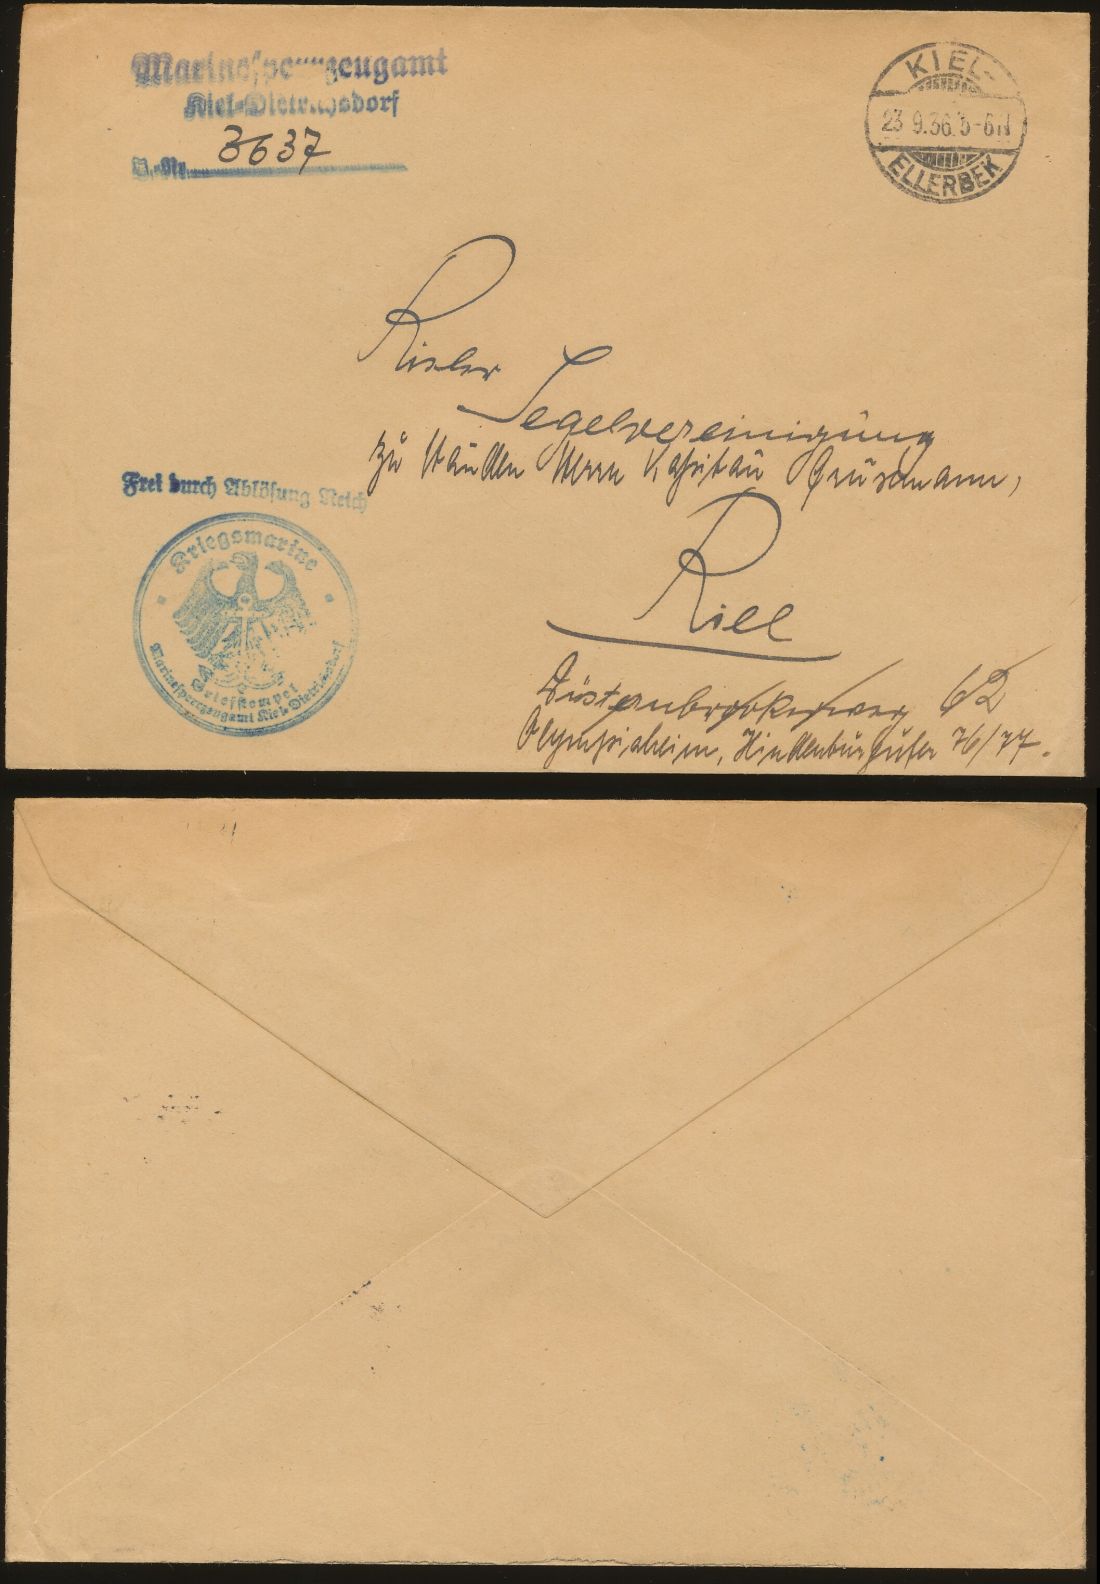 Marinesperrzeugamt
Kiel-Dietrichsdorf
B.-Nr. 3637
KIEL-
23.9.36. 5-6N
ELLERBEK
Kieler
Segelvereinigung
zu Händen Herrn Kapitän Grüsmann,
Kiel
Düsternbrookerweg 62
Olympiaheim, Hindenburgufer 76/77.
Frei durch Ablösung Reich
Kriegsmarine
Briefstempel
Marinesperrzeugamt Kiel-Dietrichsdorf